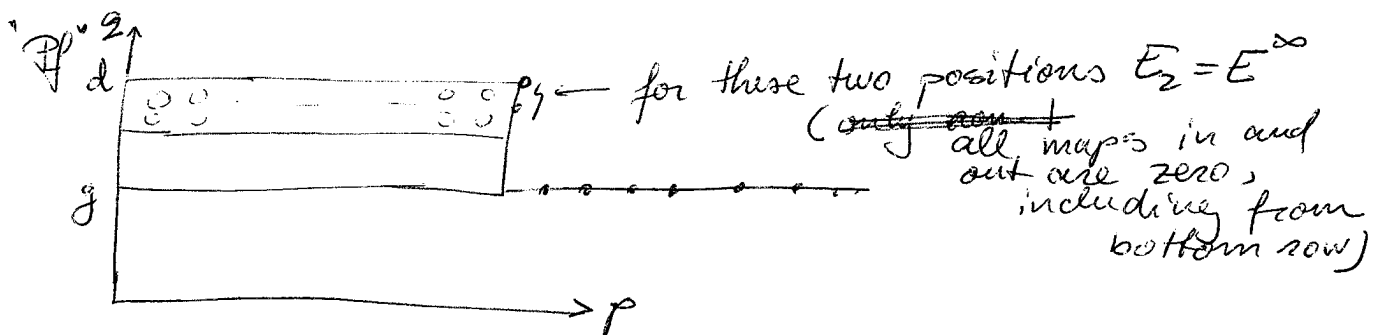 "Pf" q
d
for these two positions E_2 = E^∞
(only non
all maps in and
out are zero,
including from
bottom row)
g
p